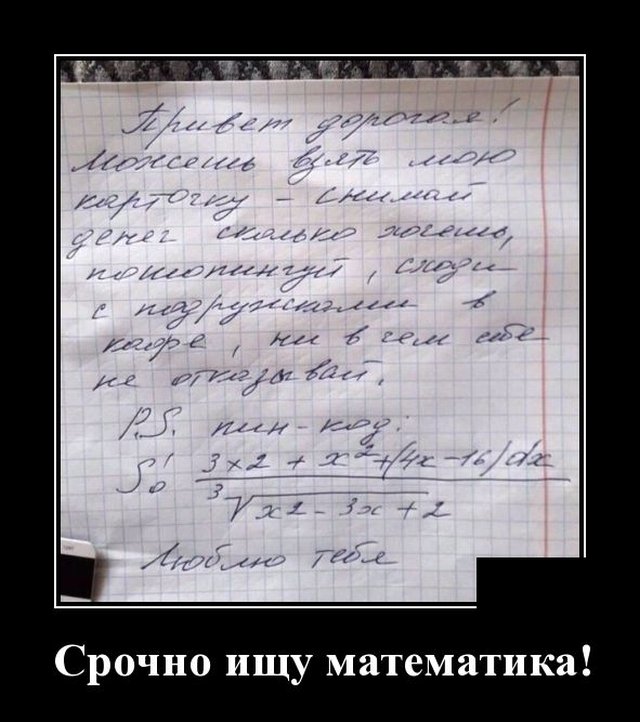 Привет дорогая!
Можешь взять мою
карточку - снимай
денег сколько хочешь,
пошопингуй, сходи
с подружками в
кафе, ни в чем себе
не отказывай.
P.S. пин-код:
∫₀¹ 3x2 + x² + (4x - 16) dx
∛x2 - 3x + 2
Люблю тебя
Срочно ищу математика!